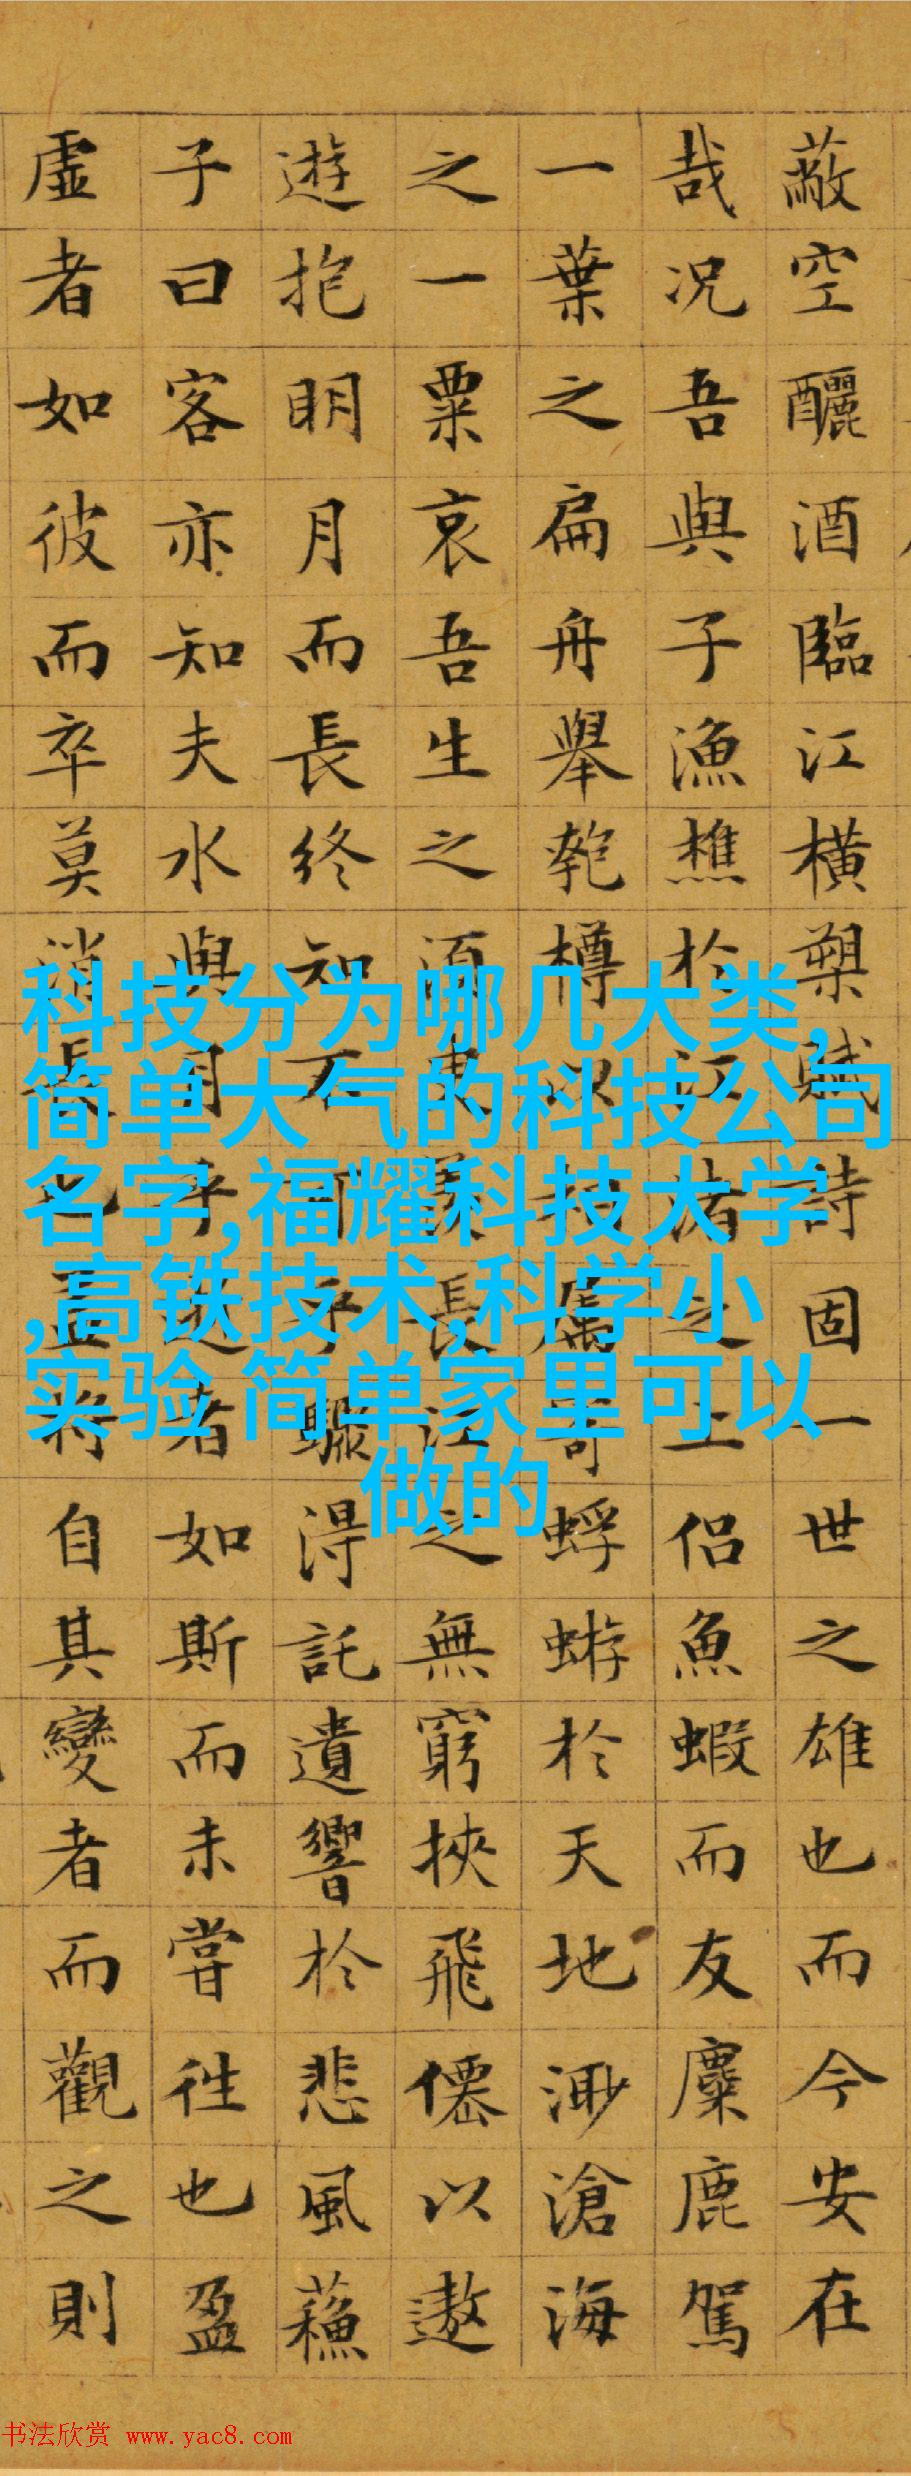 蔽空釃酒臨江橫槊賦詩固一世之雄也而今安在
哉况吾與子漁樵於江渚之上侣魚蝦而友麋鹿駕
一葉之扁舟舉匏樽以相属寄蜉蝣於天地渺滄海
之一粟哀吾生之須臾羨長江之無窮挾飛僊以遨
遊抱明月而長終知不可乎驟得託遺響於悲風蘓
子曰客亦知夫水與月乎逝者如斯而未嘗往也盈
虛者如彼而卒莫消長也盖將自其變者而觀之則
科技分为哪几大类,
简单大气的科技公司
名字,福耀科技大学
,高铁技术,科学小
实验 简单家里可以
做的
书法欣赏 www.yac8.com